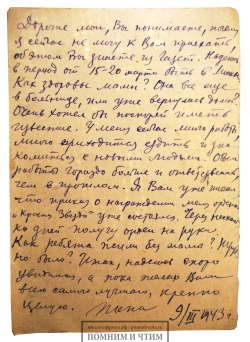 Дорогие мои, Вы понимаете, почему
я сейчас не могу к Вам приехать,
об этом Вы знаете из газет. Надеюсь
в период от 15-20 марта быть в
Как здоровье мамы? Она все еще
в больнице, или уже вернулась домой?
Очень хотел бы поскорей иметь
известие. У меня сейчас много работы
много приходится ездить и зна
комиться с новыми людьми.
работы гораздо больше и
чем в прошлом. Я Вам уже писал
что приказ о награждении меня орденом
"Красн. Звезда" уже состоялся. Через несколь
ко дней получу орден на руки.
Как ребята жили без мамы?
но было? Итак, надеюсь скоро
увидимся, а пока желаю Вам
всего самого лучшего, крепко
целую. Папа 9/III 1943 г.
ПОМНИМ И ЧТИМ